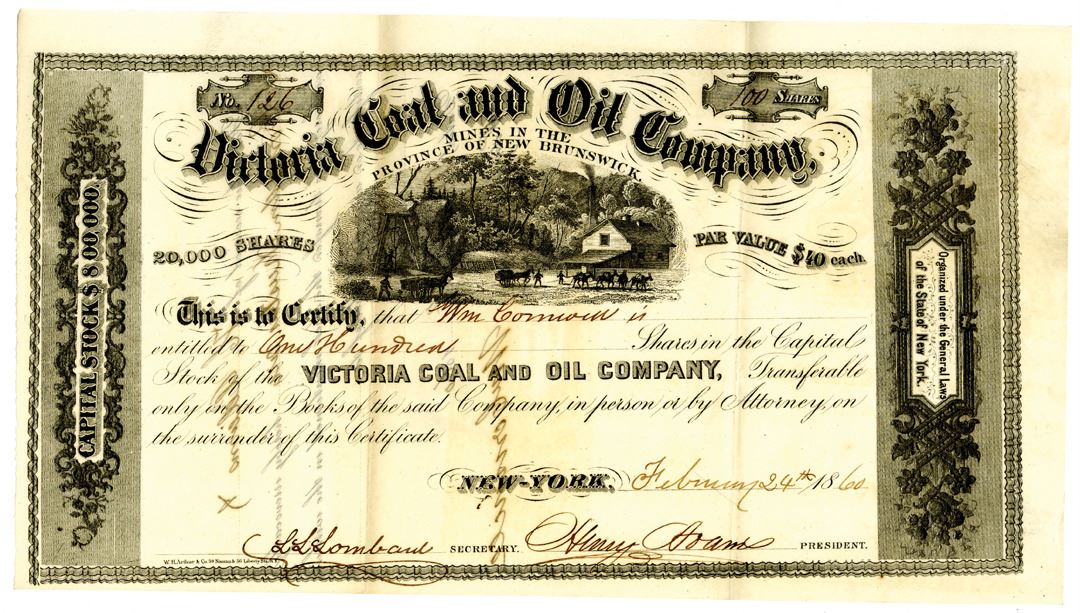 No. 126
100 SHARES
Victoria Coal and Oil Company,
MINES IN THE
PROVINCE OF NEW BRUNSWICK.
20,000 SHARES
PAR VALUE $40 each.
CAPITAL STOCK $800,000.
Organized under the General Laws
of the State of New York.
This is to Certify, that Wm Cornwell is
entitled to One Hundred Shares in the Capital
Stock of the VICTORIA COAL AND OIL COMPANY, Transferable
only on the Books of the said Company, in person or by Attorney, on
the surrender of this Certificate.
NEW-YORK, February 24th 1860
L L Lombard SECRETARY. Henry PRESIDENT.
W. H. Arthur & Co. 39 Nassau & 56 Liberty Sts. N.Y.